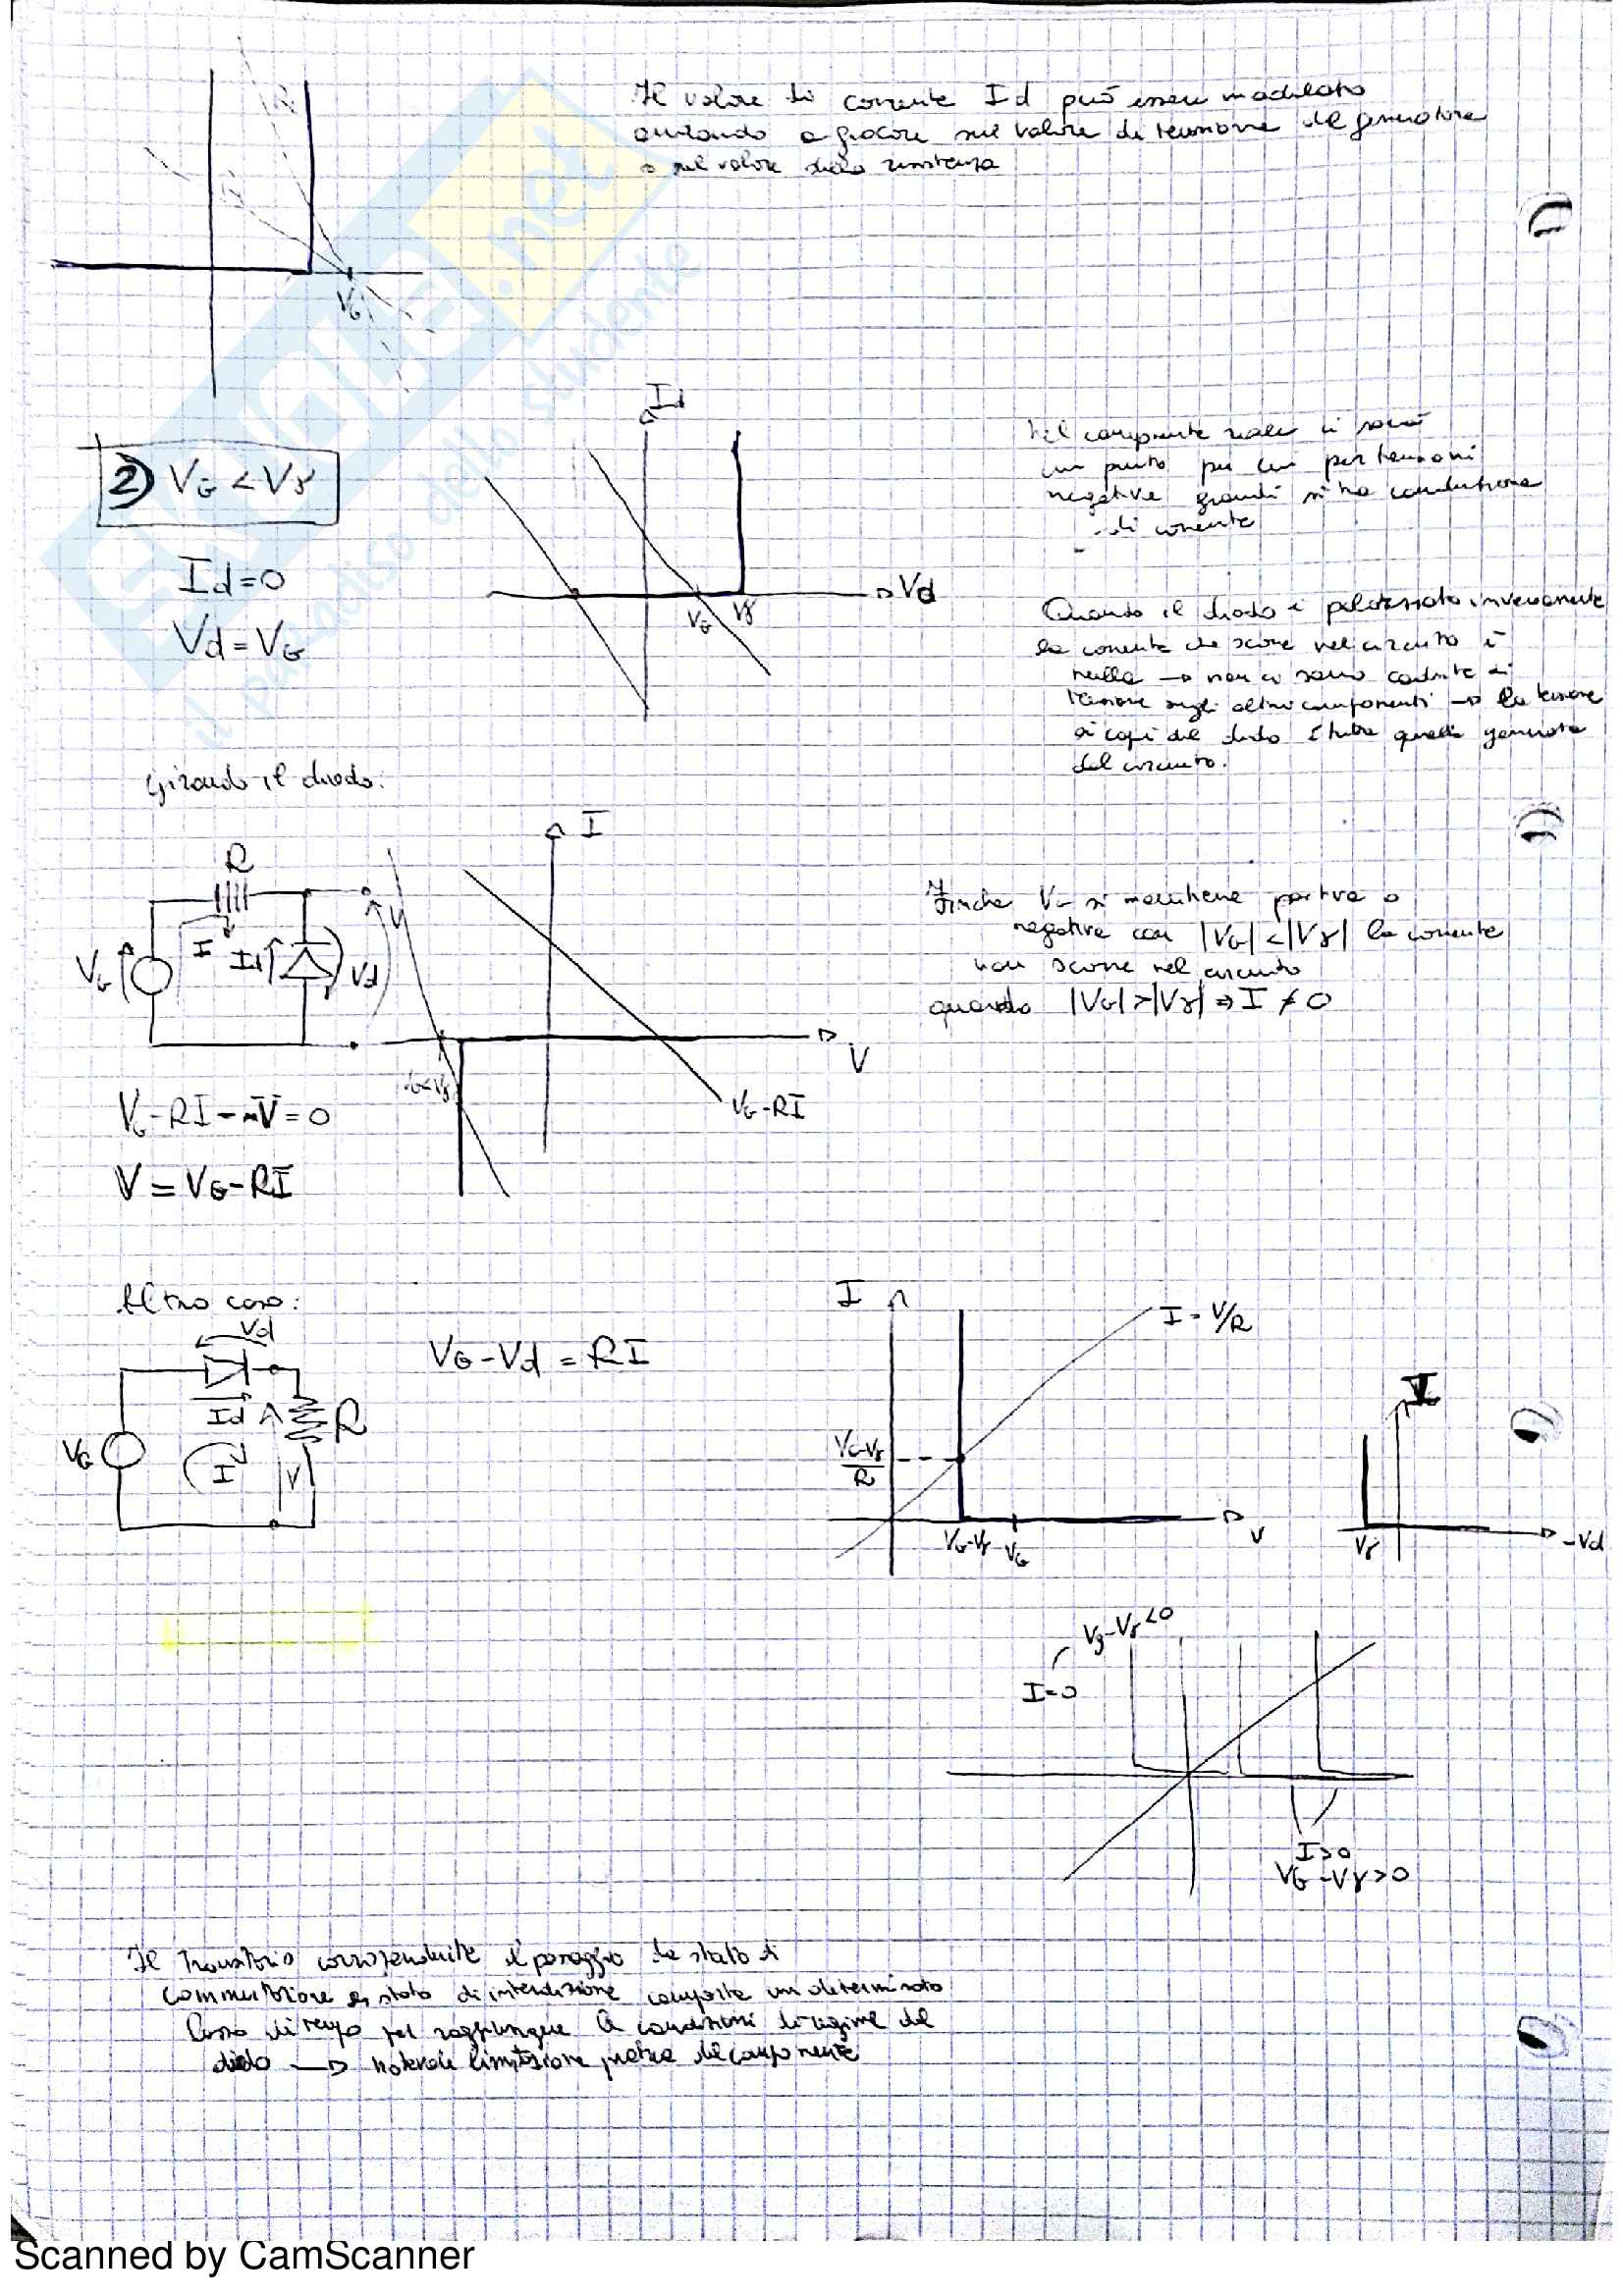 Il valore di corrente Id può essere modulato
andando a giocare sul valore di tensione del generatore
o sul valore della resistenza
R
R
VG
SKUOLA.net
il paradiso dello studente
2) VG < Vγ
Id = 0
Vd = VG
Id
Vd
VG
Vγ
Nel componente reale ci sarà
un punto per cui per tensioni
negative grandi si ha conduzione
di corrente
Quando il diodo è polarizzato inversamente
la corrente che scorre nel circuito è
nulla → non ci sono cadute di
tensione sugli altri componenti → la tensione
ai capi del diodo è tutta quella generata
dal circuito.
Girando il diodo:
R
I
Id
VG
Vd
V
I
V
VG<Vγ
VG-RI
VG-RI-V=0
V=VG-RI
Finche VG si mantiene positiva o
negativa con |VG|<|Vγ| la corrente
non scorre nel circuito
quando |VG|>|Vγ| ⇒ I ≠ 0
Altro caso:
Vd
Id
R
VG
I
V
VG-Vd = RI
I
I = V/R
VG-Vγ
R
VG-Vγ
VG
V
I
Vγ
-Vd
Vg-Vγ<0
I=0
I>0
VG-Vγ>0
Il transitorio corrispondente il passaggio da stato di
commutazione a stato di interdizione comporta un determinato
lasso di tempo per raggiungere le condizioni di regime del
diodo → notevole limitazione pratica del componente
Scanned by CamScanner